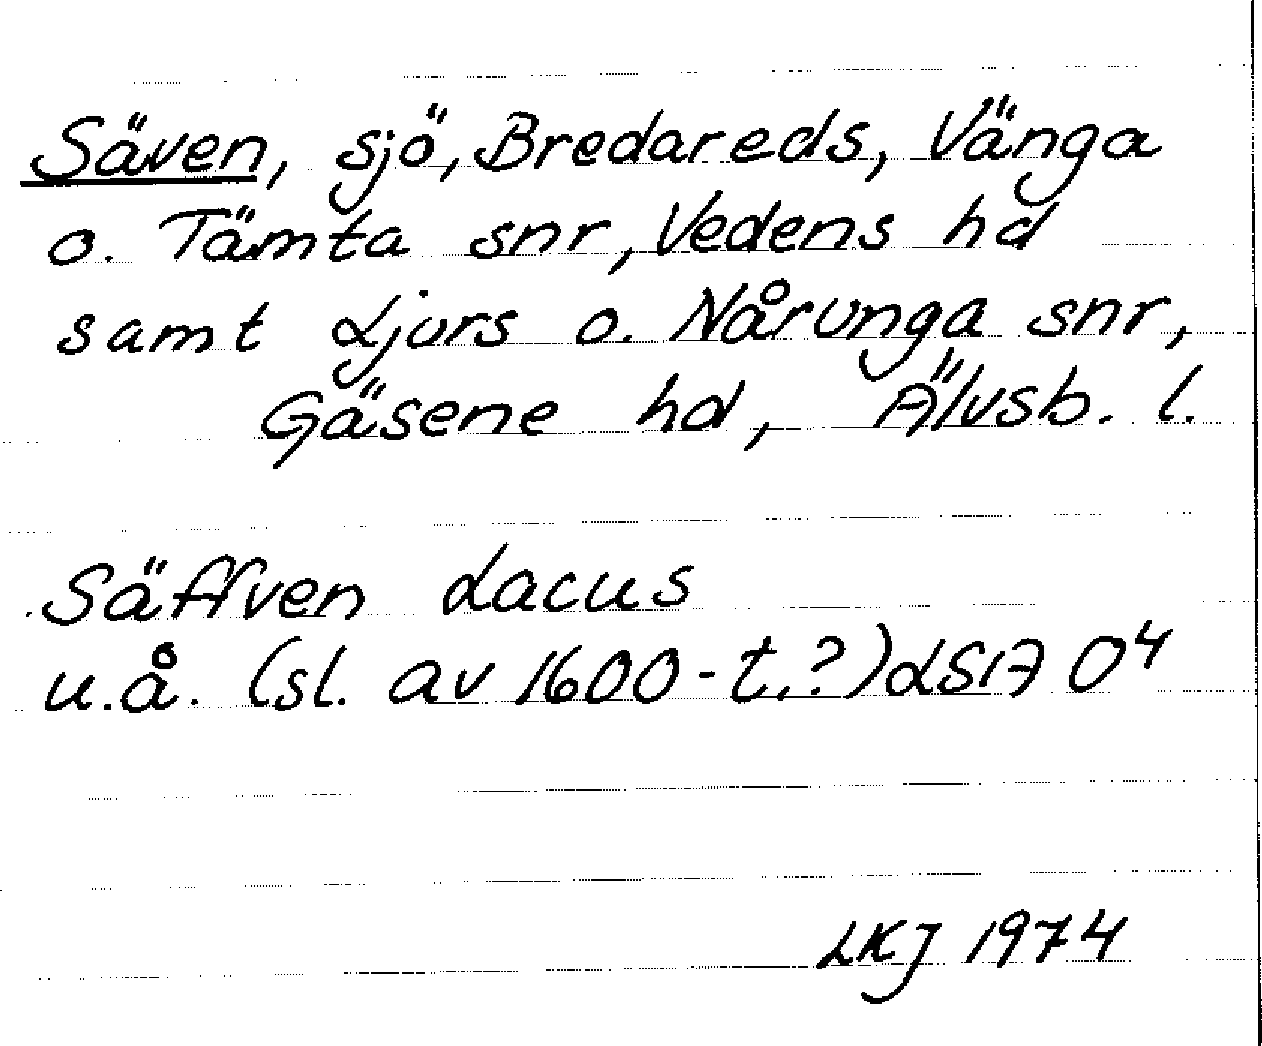 Säven, sjö, Bredareds, Vänga
o. Tämta snr, Vedens hd
samt Ljurs o. Nårunga snr,
Gäsene hd, Älvsb. l.
Säffven Lacus
u.å. (sl. av 1600-t.?) LSA O4
LKJ 1974